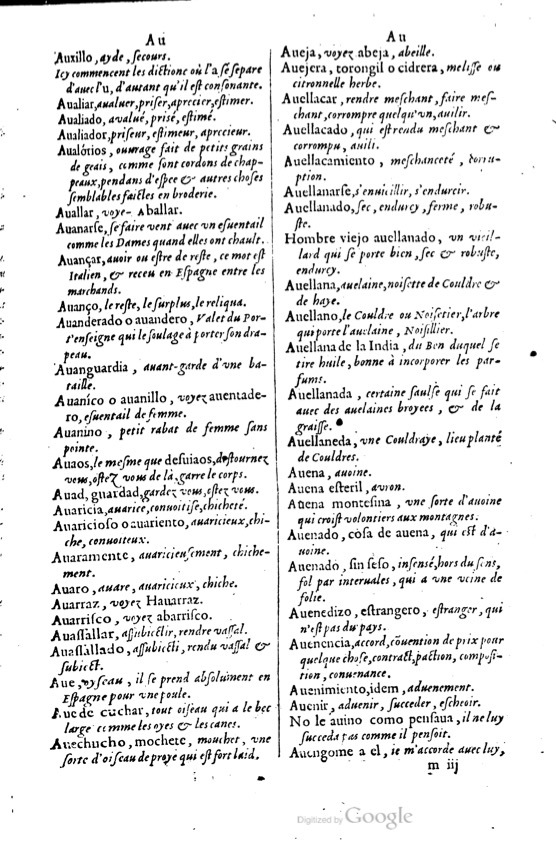 Au
Auxillo, ayde, secours.
Icy commencent les dictionc où l'a se separe
d'auec l'u, d'autant qu'il est consonante.
Aualiar, aualuer, priser, aprecier, estimer.
Aualiado, avalué, prisé, estimé.
Aualiador, priseur, estimeur, aprecieur.
Aualórios, ouurage fait de petits grains
de geais, comme sont cordons de chap-
peaux, pendans d'espee & autres choses
semblables faictes en broderie.
Auallar, voye- Aballar.
Auanarse, se faire vent auec un esuentail
comme les Dames quand elles ont chault.
Auançar, auoir ou estre de reste, ce mot est
Italien, & receu en Espagne entre les
marchands.
Auanço, le reste, le surplus, le reliqua.
Auanderado o auandero, Valet du Por-
t'enseigne qui le soulage à porter son dra-
peau.
Auanguardia, auant-garde d'vne ba-
taille.
Auaníco o auanillo, voyez auentade-
ro, esuentail de femme.
Auanino, petit rabat de femme sans
pointe.
Auaos, le mesme que desuiaos, destournez
vous, ostez vous de là, garre le corps.
Auad, guardad, gardez vous, ostez vous.
Auaricia, auarice, conuoitise, chicheté.
Auarioso o auariento, auaricieux, chi-
che, conuoiteux.
Auaramente, auaricieusement, chiche-
ment.
Auaro, auare, auaricieux, chiche.
Auarraz, voyez Hauarraz.
Auarrisco, voyez abarrisco.
Auassallar, assubiectir, rendre vassal.
Auassallado, assubiecti, rendu vassal &
subiect.
Aue, oyseau, il se prend absolument en
Espagne pour vne poule.
Aue de cuchar, tout oiseau qui a le bec
large comme les oyes & les canes.
Auechucho, mochete, mouchet, vne
sorte d'oiseau de proye qui est fort laid.
Au
Aueja, voyez abeja, abeille.
Auejera, torongil o cidrera, melisse ou
citronnelle herbe.
Auellacar, rendre meschant, faire mes-
chant, corrompre quelqu'vn, auilir.
Auellacado, qui est rendu meschant &
corrompu, auili.
Auellacamiento, meschanceté, corru-
ption.
Auellanarse, s'enuieillir, s'endurcir.
Auellanado, sec, endurcy, ferme, robu-
ste.
Hombre viejo auellanado, vn vieil-
lard qui se porte bien, sec & robuste,
endurcy.
Auellana, auelaine, noisette de Couldre &
de haye.
Auellano, le Couldre ou Noisetier, l'arbre
qui porte l'auelaine, Noisillier.
Auellana de la India, du Ben duquel se
tire huile, bonne à incorporer les par-
fums.
Auellanada, certaine saulse qui se fait
auec des auelaines broyees, & de la
graisse.
Auellaneda, vne Couldraye, lieu planté
de Couldres.
Auena, auoine.
Auena esteril, avron.
Auena montesina, vne sorte d'auoine
qui croist volontiers aux montagnes.
Auenado, cosa de auena, qui est d'a-
uoine.
Auenado, sin seso, insensé, hors du sens,
fol par interuales, qui a vne veine de
folie.
Auenedizo, estrangero, estranger, qui
n'est pas du pays.
Auenencia, accord, cōuention de prix pour
quelque chose, contract, paction, composi-
tion, conuenance.
Auenimiento, idem, aduenement.
Auenir, aduenir, succeder, escheoir.
No le auino como pensaua, il ne luy
succeda pas comme il pensoit.
Auengome a el, ie m'accorde auec luy,
m iij
Digitized by Google